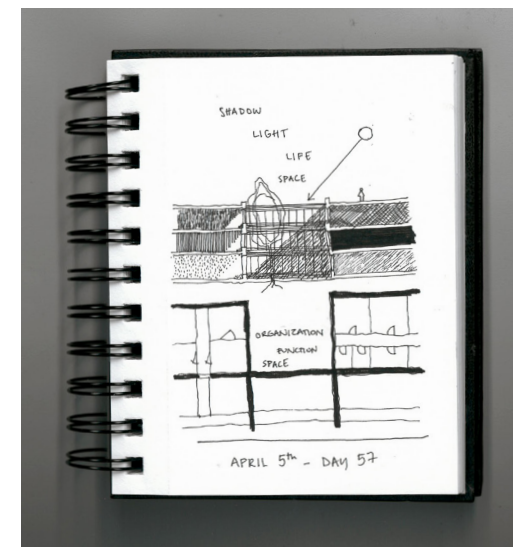 SHADOW
LIGHT
LIFE
SPACE
ORGANIZATION
FUNCTION
SPACE
APRIL 5th - DAY 57